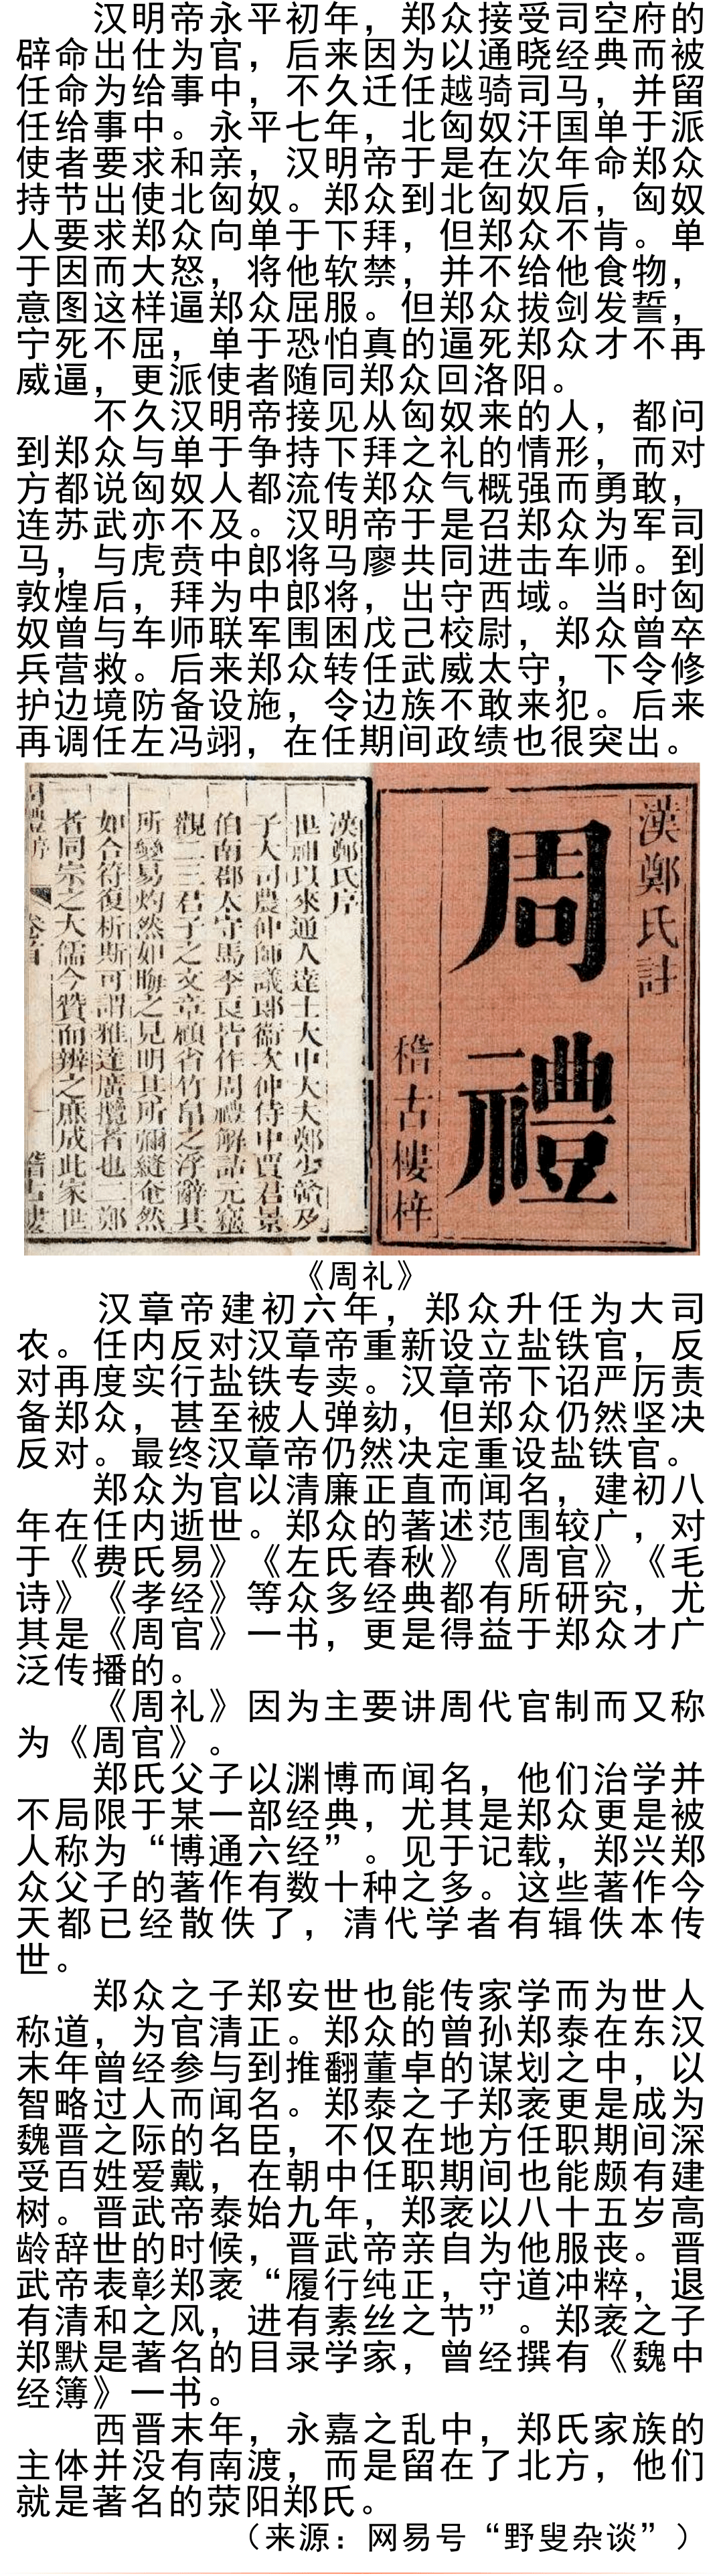 汉明帝永平初年，郑众接受司空府的
辟命出仕为官，后来因为以通晓经典而被
任命为给事中，不久迁任越骑司马，并留
任给事中。永平七年，北匈奴汗国单于派
使者要求和亲，汉明帝于是在次年命郑众
持节出使北匈奴。郑众到北匈奴后，匈奴
人要求郑众向单于下拜，但郑众不肯。单
于因而大怒，将他软禁，并不给他食物，
意图这样逼郑众屈服。但郑众拔剑发誓，
宁死不屈，单于恐怕真的逼死郑众才不再
威逼，更派使者随同郑众回洛阳。
不久汉明帝接见从匈奴来的人，都问
到郑众与单于争持下拜之礼的情形，而对
方都说匈奴人都流传郑众气概强而勇敢，
连苏武亦不及。汉明帝于是召郑众为军司
马，与虎贲中郎将马廖共同进击车师。到
敦煌后，拜为中郎将，出守西域。当时匈
奴曾与车师联军围困戊己校尉，郑众曾卒
兵营救。后来郑众转任武威太守，下令修
护边境防备设施，令边族不敢来犯。后来
再调任左冯翊，在任期间政绩也很突出。
漢鄭氏註
周禮
稽古樓梓
漢鄭氏序
世祖以來通人達士大中大夫鄭少贛及
子大司農仲師議郎衛次仲侍中賈君景
伯南郡太守馬季長皆作周禮解詁元竊
觀二三君子之文章顧省竹帛之浮辭其
所變易灼然如晦之見明其所彌縫奄然
如合符復析斯可謂雅達廣攬者也二鄭
者同宗之大儒今贊而辨之庶成此家世
《周礼》
汉章帝建初六年，郑众升任为大司
农。任内反对汉章帝重新设立盐铁官，反
对再度实行盐铁专卖。汉章帝下诏严厉责
备郑众，甚至被人弹劾，但郑众仍然坚决
反对。最终汉章帝仍然决定重设盐铁官。
郑众为官以清廉正直而闻名，建初八
年在任内逝世。郑众的著述范围较广，对
于《费氏易》《左氏春秋》《周官》《毛
诗》《孝经》等众多经典都有所研究，尤
其是《周官》一书，更是得益于郑众才广
泛传播的。
《周礼》因为主要讲周代官制而又称
为《周官》。
郑氏父子以渊博而闻名，他们治学并
不局限于某一部经典，尤其是郑众更是被
人称为“博通六经”。见于记载，郑兴郑
众父子的著作有数十种之多。这些著作今
天都已经散佚了，清代学者有辑佚本传
世。
郑众之子郑安世也能传家学而为世人
称道，为官清正。郑众的曾孙郑泰在东汉
末年曾经参与到推翻董卓的谋划之中，以
智略过人而闻名。郑泰之子郑袤更是成为
魏晋之际的名臣，不仅在地方任职期间深
受百姓爱戴，在朝中任职期间也能颇有建
树。晋武帝泰始九年，郑袤以八十五岁高
龄辞世的时候，晋武帝亲自为他服丧。晋
武帝表彰郑袤“履行纯正，守道冲粹，退
有清和之风，进有素丝之节”。郑袤之子
郑默是著名的目录学家，曾经撰有《魏中
经簿》一书。
西晋末年，永嘉之乱中，郑氏家族的
主体并没有南渡，而是留在了北方，他们
就是著名的荥阳郑氏。
（来源：网易号“野叟杂谈”）